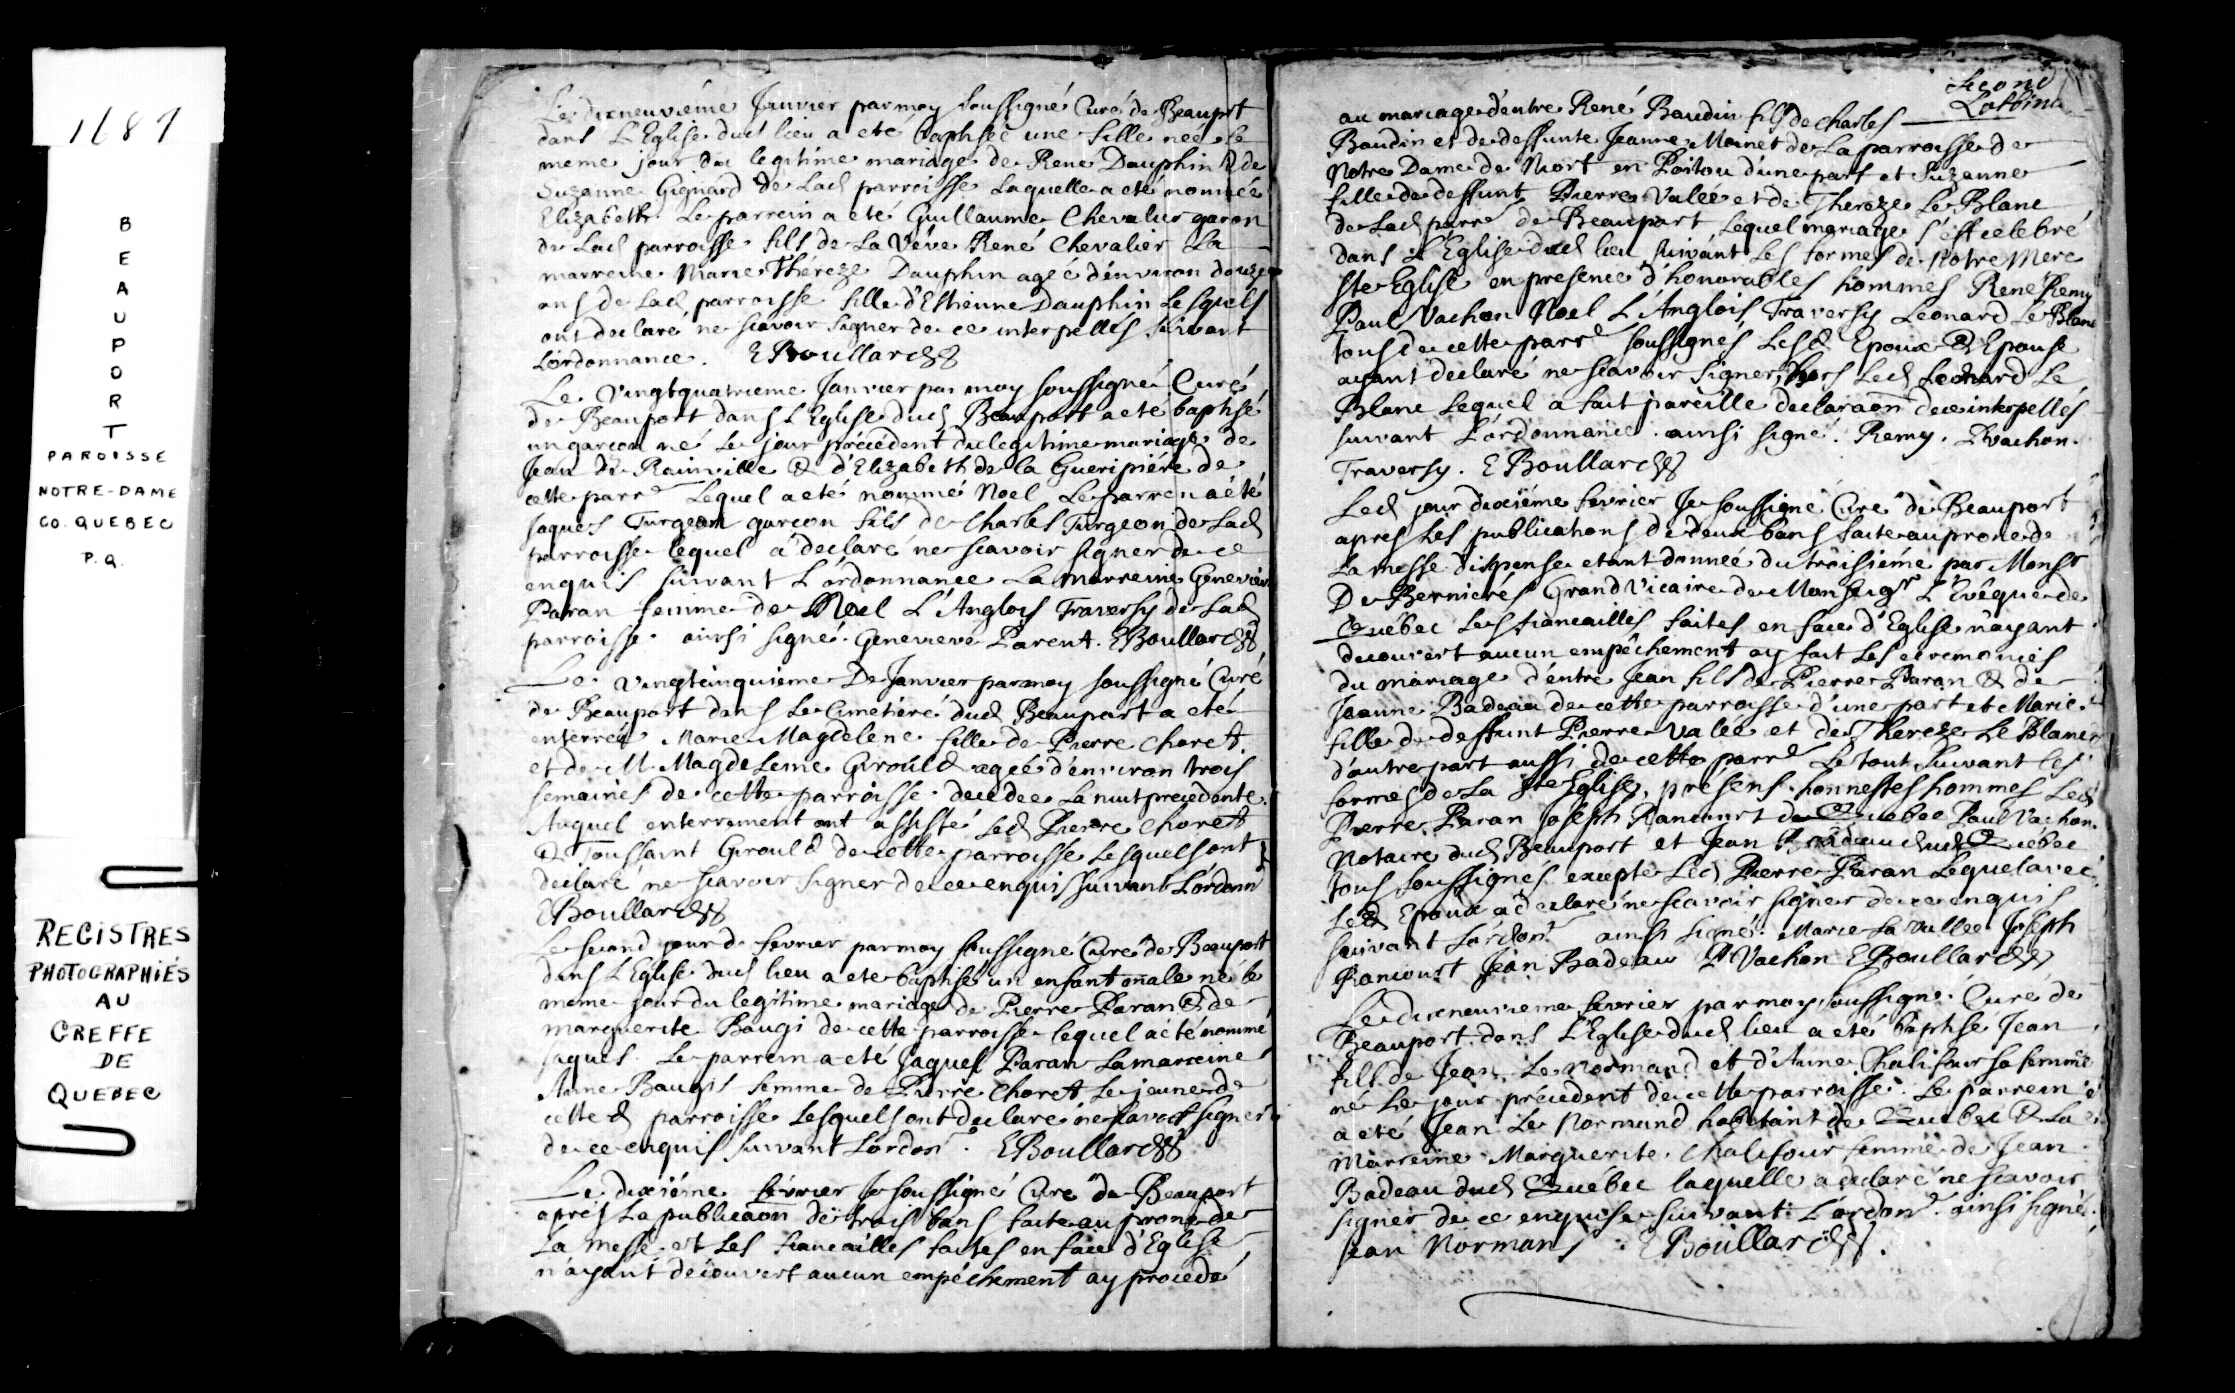 1687
BEAUPORT
PAROISSE
NOTRE-DAME
CO. QUEBEC
P.Q.
REGISTRES
PHOTOGRAPHIÉS
AU
GREFFE
DE
QUEBEC
Le dixneuviéme Janvier par moy soussigné Curé de Beauport
dans L'Eglise dud lieu a eté baptisée une fille neé le
meme jour du legitime mariage de René Dauphin & de
Suzanne Gignard de Lad parroisse Laquelle a eté nommée
Elizabeth. Le parrein a eté Guillaume Chevalier garcon
de Lad parroisse fils de La Veve René Chevalier La
marreine Marie Théreze Dauphin ageé d'environ douze
ans de Lad parroisse fille d'Estienne Dauphin Lesquels
ont declaré ne sçavoir signer de ce interpellés suivant
L'ordonnance. EBoullard
Le Vingtquatrieme Janvier par moy soussigné Curé
de Beauport dans L'Eglise dud Beauport a eté baptisé
un garcon né le jour précédent du legitime mariage de
Jean De Rainville & d'Elizabeth de la Gueripiére de
cette parr^e Lequel a eté nommé Noel Le parrein a été
Jaques Turgeon garcon fils de Charles Turgeon de Lad
parroisse lequel a declaré ne scavoir signer de ce
enquis suivant L'ordonnance La marreine Genevieve
Paran femme de Noel L'Anglois Traversy de Lad
parroisse. ainsi signé. Genevieve Parent. EBoullard
Le Vingtcinquieme De Janvier par moy soussigné Curé
de Beauport dans Le Cimetiére dud Beauport a eté
enterreé Marie Magdelene fille de Pierre Choret
et de M. Magdeleine Girould ageé d'environ trois
semaines de cette parroisse. decedée La nuit precedente.
Auquel enterrement ont assisté led Pierre Choret
& Toussaint Girould de cette parroisse Lesquels ont
declaré ne scavoir signer de ce enquis suivant L'ordonn
EBoullard
Le second jour de fevrier par moy soussigné Curé de Beauport
dans L'Eglise dud lieu a eté baptisé un enfant male né le
meme jour du legitime mariage de Pierre Paran & de
marguerite Baugi de cette parroisse lequel a eté nommé
Jaques. Le parrein a eté Jaques Paran La marreine
Anne Baugis femme de Pierre Choret Le jeune de
cette d parroisse Lesquels ont declaré ne scavoir signer
de ce enquis suivant L'ordon^e. EBoullard
Le dixiéme février Je soussigné Curé de Beauport
aprés La publicaon de trois bans faite au prone de
La messe et Les fiancailles faites en face d'Eglise
n'ayant découvert aucun empéchement ay procedé
Second
au mariage d'entre René Baudin fils de Charles
Baudin et de deffunte Jeanne Moinet de La parroisse de
Notre Dame de Niort en Poitou d'une part et Suzanne
fille de deffunt Pierre Valée et de Thereze Le Blanc
de Lad parr^e de Beauport Lequel mariage s'est celebré
dans L'Eglise dud lieu suivant Les formes de Notre Mere
Ste Eglise en presence d'honorables hommes René Remy
Paul Vachon Noel L'Anglois Traversy Leonard Le Blanc
tous de cette parr^e soussignés Lesd Epoux & Epouse
ayant declaré ne scavoir signer, hors Led Leonard Le
Blanc Lequel a fait pareille declaraon de ce interpellés
suivant L'ordonnance. ainsi signé. Remy. PVachon.
Traversy. EBoullard
Led jour dixiéme fevrier Je soussigné Curé de Beauport
apres Les publications de deux bans faite au prone de
La messe dispense etant donnée du troisiéme par Monsr
De Berniérés Grand Vicaire de Monseigr L'Evêque de
Québec Les fiancailles faites en face d'Eglise n'ayant
decouvert aucun empêchement ay fait Les ceremonies
du mariage d'entre Jean fils de Pierre Paran & de
Jeanne Badeau de cette parroisse d'une part et Marie
fille de deffunt Pierre Valée et de Thereze Le Blanc
d'autre part aussi de cette parr^e Le tout suivant les
formes de La Ste Eglise, présens honnestes hommes Led
Pierre Paran Joseph Rancourt de Quebec Paul Vachon
Notaire dud Beauport et Jean Badeau dud Québec
tous soussignés excepté Led Pierre Paran Lequel avec
Led Epoux a declaré ne scavoir signer de ce enquis
suivant L'ordon^e ainsi signé. Marie La Vallée Joseph
Rancourt Jean Badeau P Vachon EBoullard
Le dixneuvieme fevrier par moy soussigné Curé de
Beauport dans L'Eglise dud lieu a eté baptisé Jean
fils de Jean Le Normand et d'Anne Chalifour sa femme
né Le jour précedent de cette parroisse. Le parrein
a eté Jean Le Normand habitant de Quebec & La
Marreine Marguerite Chalifour femme de Jean
Badeau dud Quebec laquelle a declaré ne scavoir
signer de ce enquise suivant L'ordon^e. ainsi signé.
Jean Normand. EBoullard.